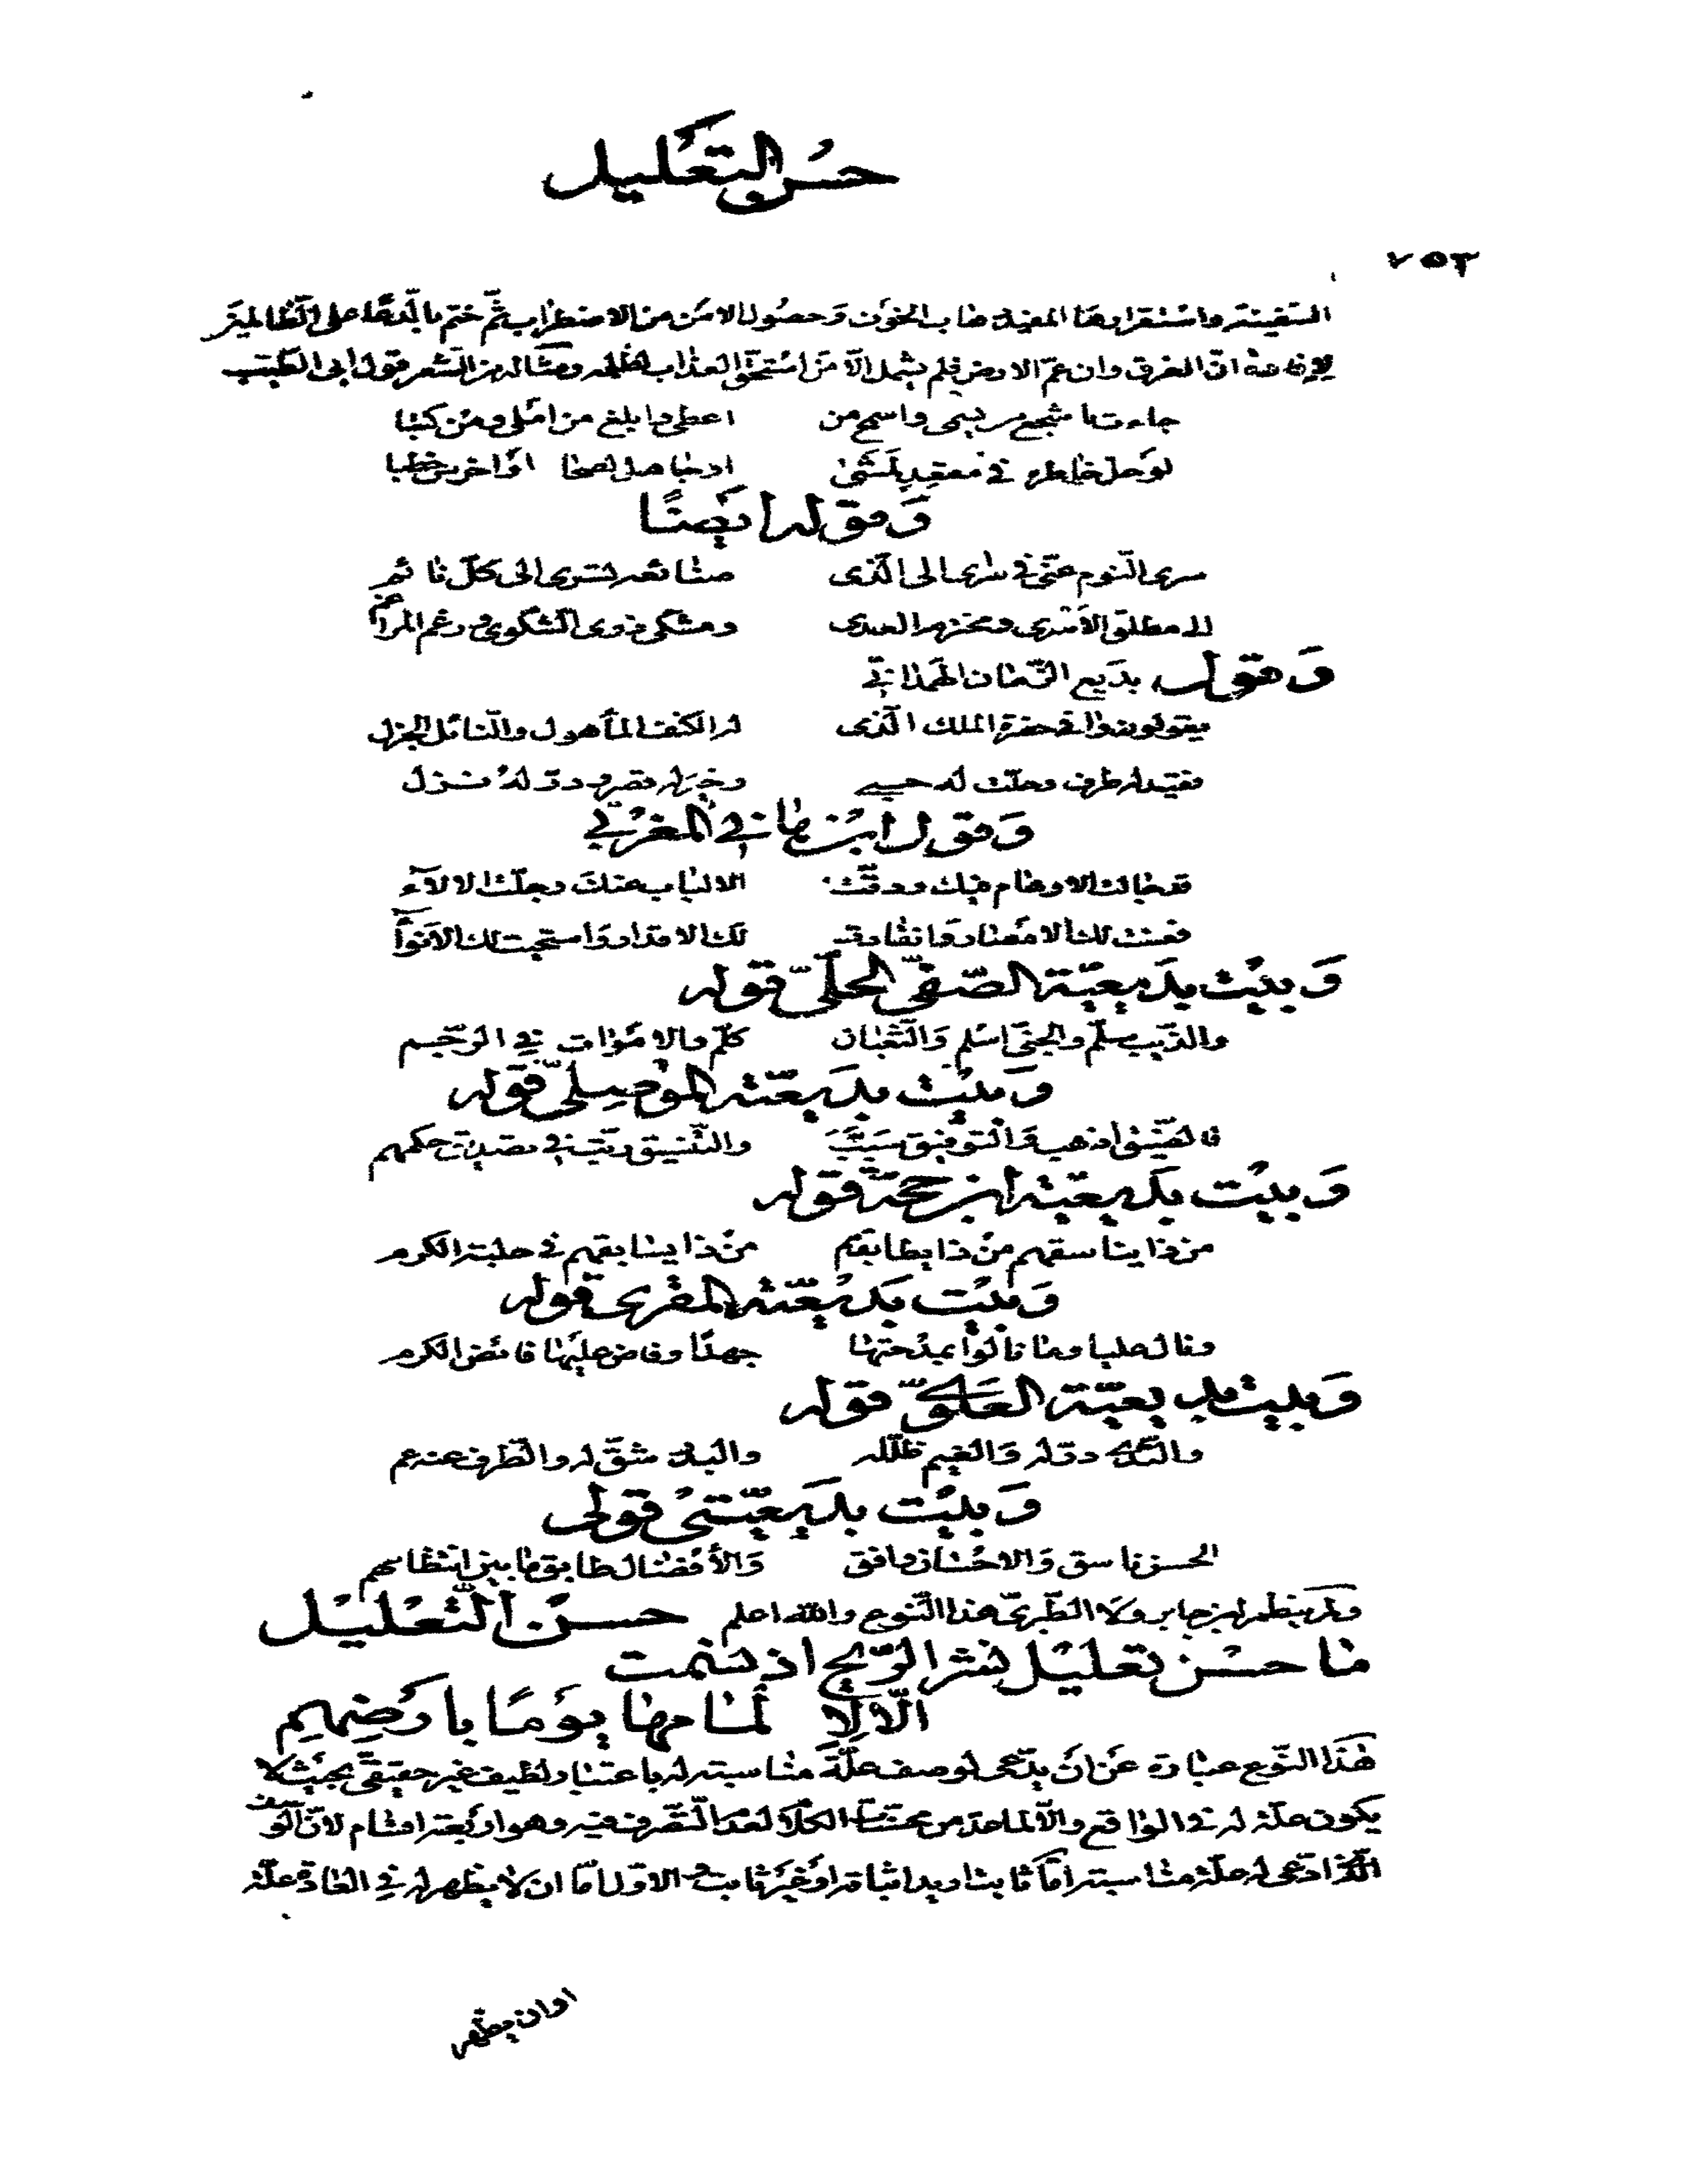 حسن التعليل
٧٥٣
السّفينة واستقرارها المفيد ذهاب الخوف وحصول الامن من الاضطراب ثمّ ختم بالدّعاء على الظّالمين
لافادة انّ الغرق وان عمّ الارض فلم يشمل الّا من استحقّ العذاب لظلمه ومثاله من الشّعر قول ابى الطّيّب
جاءت باشجع من يسمى واسمح من اعطى وابلغ من املى ومن كتبا
لوحلّ خاطره في مقعد لمشى اوجاهل لصحا اواخرس خطبا
وقوله ايضًا
سرى النّوم عنّى في سراى الى الّذى صنائعه تسرى الى كلّ نائم
الى مطلق الاسرى ومخترم العدى ومشكى ذوى الشّكوى ورغم المراغم
وقول بديع الزّمان الهمذانيّ
يقولون وافى حضرة الملك الّذى له الكنف المأهول والنّائل الجزل
فقيد له طرف وحلّت له حبى وخيرله قصر ودرّ له نزل
وقول ابن هانى المغربي
فدخالت الاوهام فيك ودقّت الالباب عنك وجلّت الالآء
فعنت لك الامصار وانقادت لك الاقدار واستحيت لك الانوآء
وبيت بديعيّة الصّفىّ الحلّىّ قوله
والذّيب سلّم والجنّى اسلم والثّعبان كلّم والاموات في الرّجم
وبيت بديعيّته الموصلىّ قوله
والتّنسيق رتّب في تصديق حكمهم
وبيت بديعيّة ابن حجّة قوله
من ذا يناسقهم من ذا يطابقهم من ذا يسابقهم في حلبة الكرم
وبيت بديعيّة المقرى قوله
ونال عليا وما نالوا بمدحتها جهدًا وفاض عليها فائض الكرم
وبيت بديعيّة العلوىّ قوله
درّ له والغيم ظلّله والبدر شقّ له والطّرف عنه عم
وبيت بديعيّتى قولى
الحسن ناسق والاحسان وافق والأفضال طابق ما بين انتظامهم
ولم ينظم ابن جابر ولا الطّبرىّ هذا النّوع والله اعلم حسن التّعليل
ما حسن تعليل نشر الرّيح اذ نسمت
الّا لالمامها يومًا بارضهم
هذا النّوع عبارة عن ان يدّعى لوصف علّة مناسبة له باعتبار لطيف غير حقيقىّ بحيث لا
يكون علّة له في الواقع والّا لما عدّ من محسّنات الكلام لعدم التّصرف فيه وهو اربعة اقسام لانّ الوصف
الّذى ادّعى له علّة مناسبة امّا ثابت اريد اثباته او غير ثابت والاوّل امّا ان لا يظهر له في العادة علّة
اوان يظهر